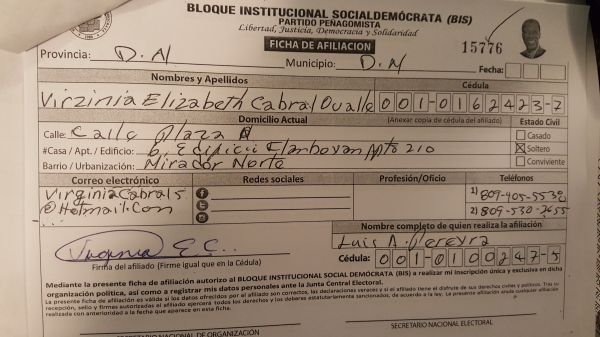 BLOQUE INSTITUCIONAL SOCIALDEMÓCRATA (BIS)
PARTIDO PEÑAGOMISTA
Libertad, Justicia, Democracia y Solidaridad
FICHA DE AFILIACION
15776
Provincia: D.N Municipio: D.N Fecha:
Nombres y Apellidos Cédula
Virginia Elizabeth Cabral Ovalle 001-0162423-7
Domicilio Actual (Anexar copia de cédula del afiliado) Estado Civil
Calle: Calle Plaza Casado
#Casa / Apt. / Edificio: Edificio Elanboyan Apto 210 Soltero
Barrio / Urbanización: Mirador Norte Conviviente
Correo electrónico Redes sociales Profesión/Oficio Teléfonos
VirginiaCabral5 1) 809-405-5538
@Hotmail.Com 2) 809-530-2655
Nombre completo de quien realiza la afiliación
Virginia E.C... Luis A. Pereyra
Firma del afiliado (Firme igual que en la Cédula) Cédula: 001-0100247-5
Mediante la presente ficha de afiliación autorizo al BLOQUE INSTITUCIONAL SOCIAL DEMÓCRATA (BIS) a realizar mi inscripción única y exclusiva en dicha
organización política, así como a registrar mis datos personales ante la Junta Central Electoral.
La presente ficha de afiliación es válida si los datos ofrecidos por el afiliado son correctos, las declaraciones veraces y si el afiliado tiene el disfrute de sus derechos civiles y políticos. Tras su
recepción, sello y firmas autorizadas el afiliado ejercerá todos los derechos y los deberes estatutariamente sancionados, de acuerdo a la ley. La presente afiliación anula cualquier afiliación
realizada con anterioridad a la fecha que aparece en esta ficha.
SECRETARIO NACIONAL DE ORGANIZACIÓN SECRETARIO NACIONAL ELECTORAL